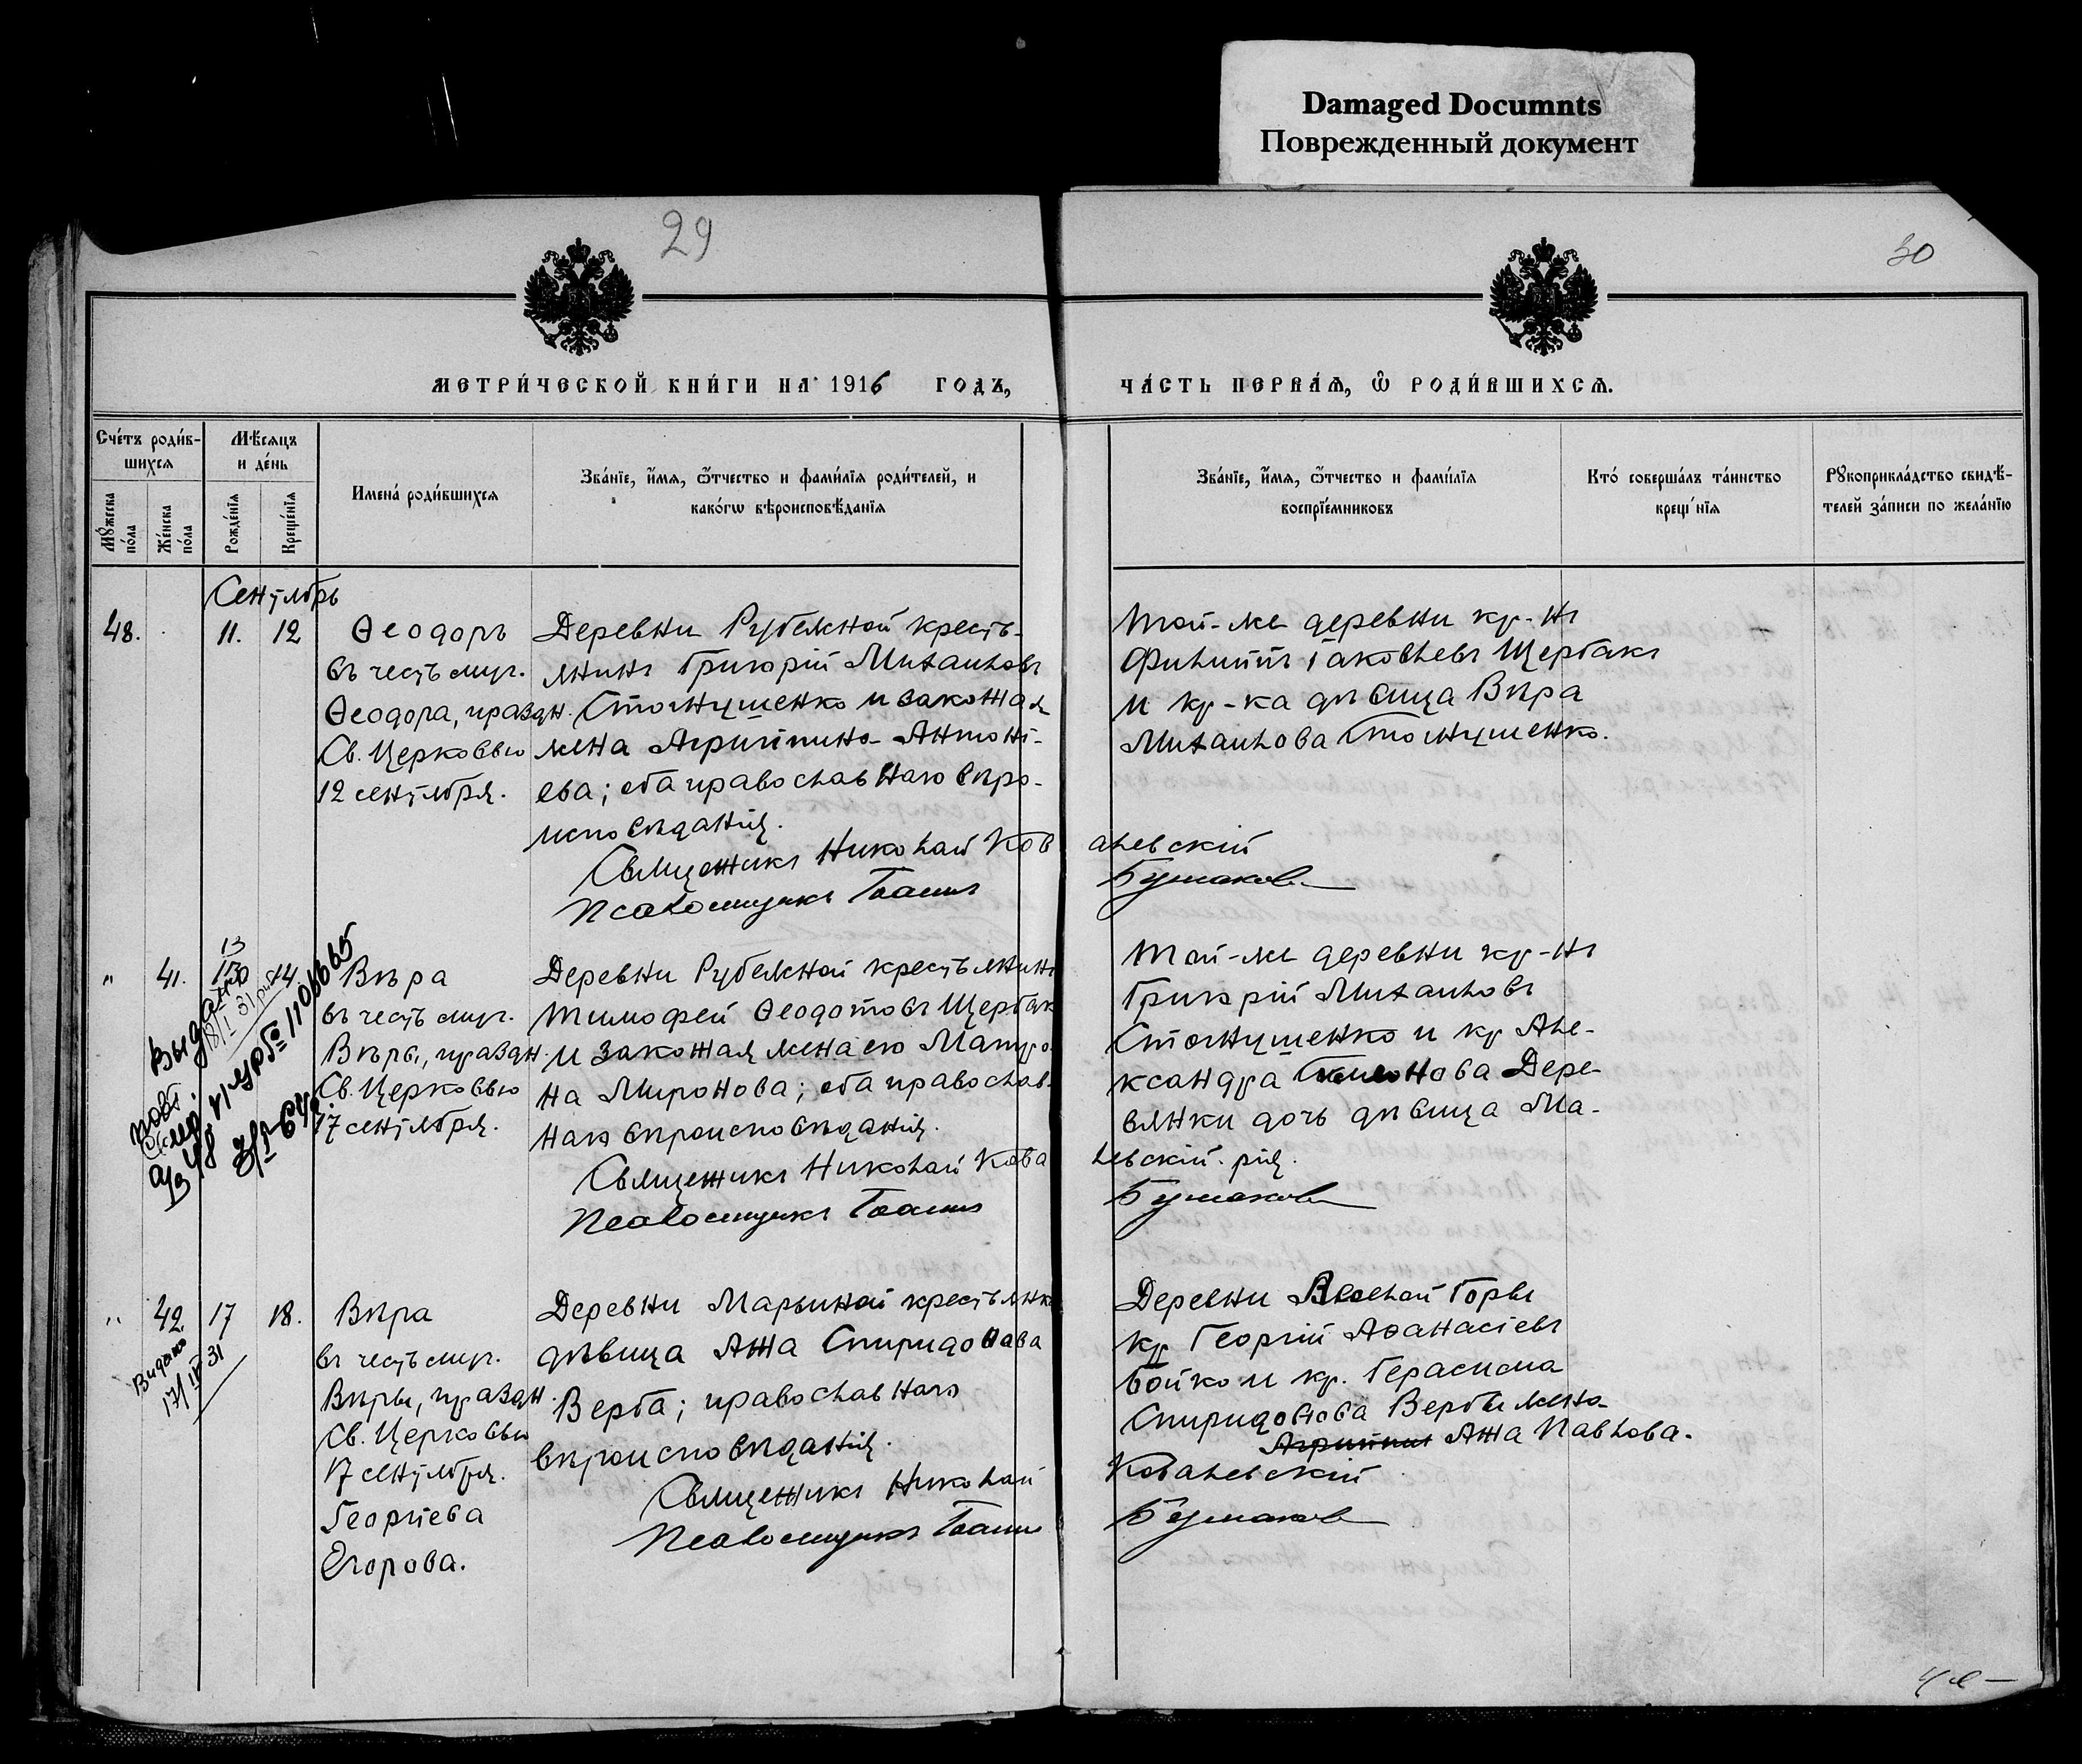 Damaged Documnts
Поврежденный документ
29
30
МЕТРИ́ЧЕСКОЙ КНИ́ГИ НА 1916 ГОДЪ,
ЧА́СТЬ ПЕРВА́Ѧ, Ѽ РОДИ́ВШИХСѦ.
Сче́тъ роди́в-
шихсѧ
Мѣ́сѧцъ
и де́нь
Мꙋ́жеска
по́ла
Же́нска
по́ла
Рожде́нїѧ
Креще́нїѧ
Имена́ роди́вшихсѧ
Зва́нїе, и҆́мѧ, ѻ҆́тчество и фами́лїѧ роди́телей, и
како́гѡ вѣроисповѣ́данїѧ
Зва́нїе, и҆́мѧ, ѻ҆́тчество и фами́лїѧ
воспрїе́мниковъ
Кто́ соверша́лъ та́инство
креще́нїѧ
Рꙋкоприкла́дство свидѣ́-
телей за́писи по жела́нїю
Сентябрь
48. 11. 12
Ѳеодоръ
въ честь муч.
Ѳеодора, праздн.
Св. Церковью
12 сентября.
Деревни Рубежной кресть-
янинъ Григорій Михаиловъ
Стогнушенко и законная
жена Агриппина Антоні-
ева; оба православнаго вѣро-
исповѣданія.
Той-же деревни кр-нъ
Филиппъ Іаковлевъ Щербакъ
и кр-ка дѣвица Вѣра
Михаилова Стогнушенко.
Священникъ Николай Ковалевскій
Псаломщикъ Іоаннъ Бушаковъ
" 41. 13 14
Выдано
18/I 31
Вѣра
въ честь муч.
Вѣры, праздн.
Св. Церковью
17 сентября.
Деревни Рубежной крестьянинъ
Тимофей Ѳеодотовъ Щербакъ
и законная жена его Матро-
на Миронова; оба православ-
наго вѣроисповѣданія.
Той-же деревни кр-нъ
Григорій Михаиловъ
Стогнушенко и кр Але-
ксандра
Дере-
вянки дочь дѣвица Ма-
рія.
Священникъ Николай Ковалевскій
Псаломщикъ Іоаннъ Бушаковъ
" 42. 17 18.
Видано
17/IV 31
Вѣра
въ честь муч.
Вѣры, праздн.
Св. Церковью
17 сентября.
Георгіева
Егорова.
Деревни Марьиной крестьянка
дѣвица Анна Спиридонова
Верба; православнаго
вѣроисповѣданія.
Деревни Горы
кр Георгій Аѳанасіевъ
Бойко и кр. Герасима
Спиридонова Вербы жена
Агриппина Анна Павлова.
Священникъ Николай Ковалевскій
Псаломщикъ Іоаннъ Бушаковъ